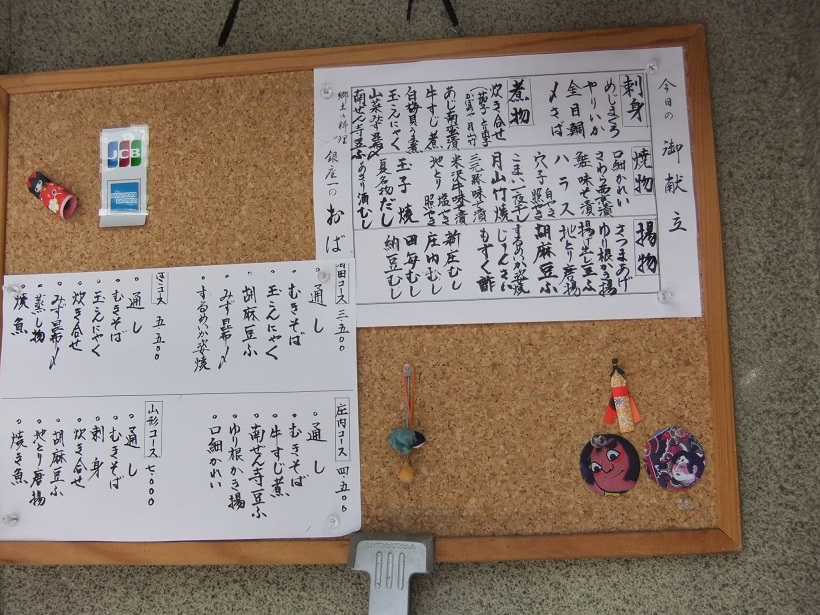 今日の 御献立
刺身
めじまぐろ
やりいか
金目鯛
〆さば
煮物
炊き合せ
あじ南蛮漬
牛すじ煮
白梅貝うま煮
玉こんにゃく
山菜みず昆布〆
南ぜん寺豆ふ
焼物
口細かれい
さわら西京漬
鮭味そ漬
ハラス
穴子 白やき 照やき
こまい一夜干し
月山竹焼
三元豚味そ漬
米沢牛味そ漬
地とり 塩やき 照やき
玉子焼
夏名物だし
あさり酒むし
揚物
さつまあげ
ゆり根かき揚
揚げ出し豆ふ
地とり唐揚
胡麻豆ふ
するめいか姿焼
じゅんさい
もずく酢
新庄むし
庄内むし
田毎むし
納豆むし
郷土の料理 銀座一の おば
コース 三、五〇〇
通し
むきそば
玉こんにゃく
胡麻豆ふ
みず昆布〆
するめいか姿焼
コース 五、五〇〇
通し
むきそば
玉こんにゃく
炊き合せ
みず昆布〆
蒸し物
焼魚
庄内コース 四、五〇〇
通し
むきそば
牛すじ煮
南ぜん寺豆ふ
ゆり根かき揚
口細かれい
山形コース 七、〇〇〇
通し
むきそば
刺身
炊き合せ
胡麻豆ふ
地とり唐揚
焼き魚
JCB